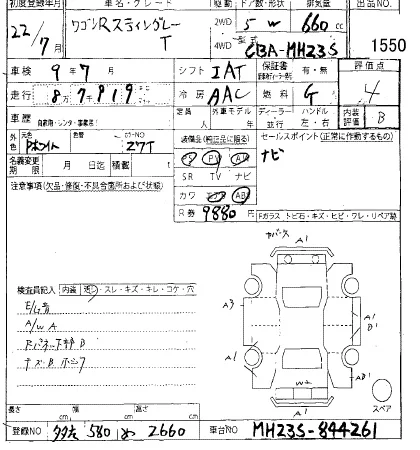 初度登録年月 車名・グレード 駆動 ドア数・形状 排気量 出品NO.
22/7月 ワゴンRスティングレー T 2WD 4WD 5 W 660cc
型式 CBA-MH23S 1550
車検 9年7月 シフト IAT 保証書 有・無 評価点
走行 8万7千919 冷房 AAC 燃料 G 4
車歴 自家用・レンタ・事業用 定員 外車モデル年 ディーラー 並行 ハンドル 左・右 内装評価 B
外色 元色 Pホワイト 色替 カラーNO Z7T 装備品(純正品に限る) セールスポイント(正常に作動するもの)
名義変更期限 月 日迄 積載 PS PW AW ナビ
SR TV ナビ
注意事項(欠品・修復・不具合箇所および状態) カワ エアB ABS
R券 9880円 Fガラス トビ石・キズ・ヒビ・ワレ・リペア跡
カバース A1
検査員記入 内装 汚れ・スレ・キズ・キレ・コゲ・穴
E/G音
A/W A A3 A1
B1
A1 AB1
W2
A1 スペア
長さ cm 幅 cm 高さ cm
登録NO 580 2660 車台NO MH23S-844261